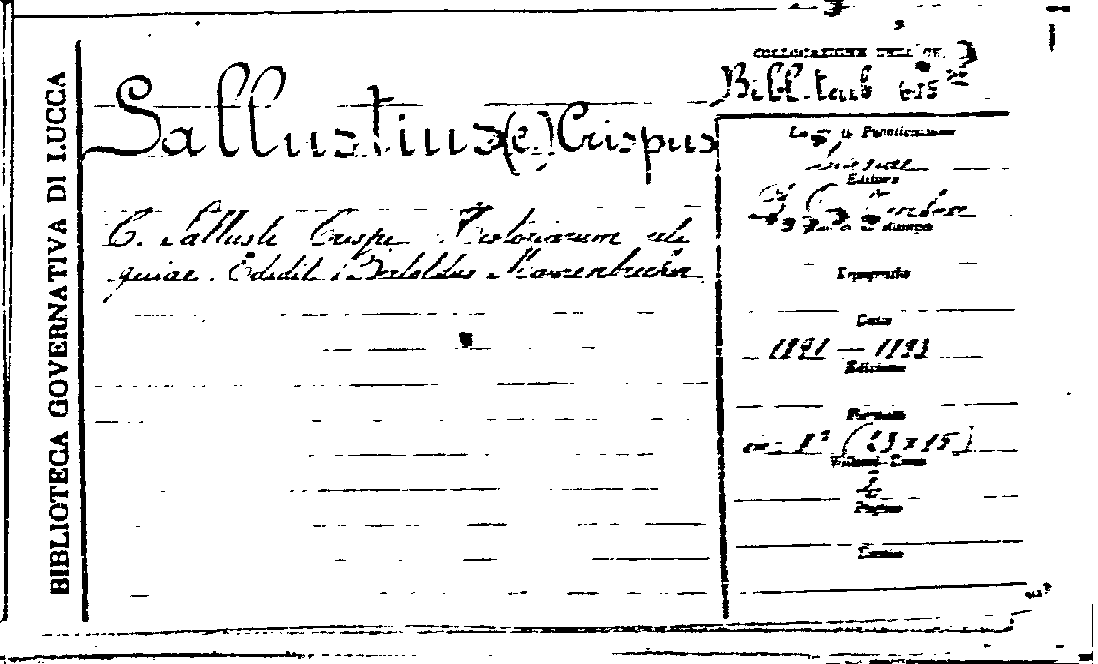 BIBLIOTECA GOVERNATIVA DI LUCCA
Sallustius (C.) Crispus
C. Sallusti Crispi Historiarum reli
quiae. Edidit Bertoldus Maurenbrecher
COLLOCAZIONE DELL'OPERA
Bibl. tail 615
Luogo di Pubblicazione
Lipsiae
Editore
B. G. Teubner
Tipografia
Data
1891 — 1893
Edizione
Formato
in 8° (23 x 15)
Volumi
2
Pagine